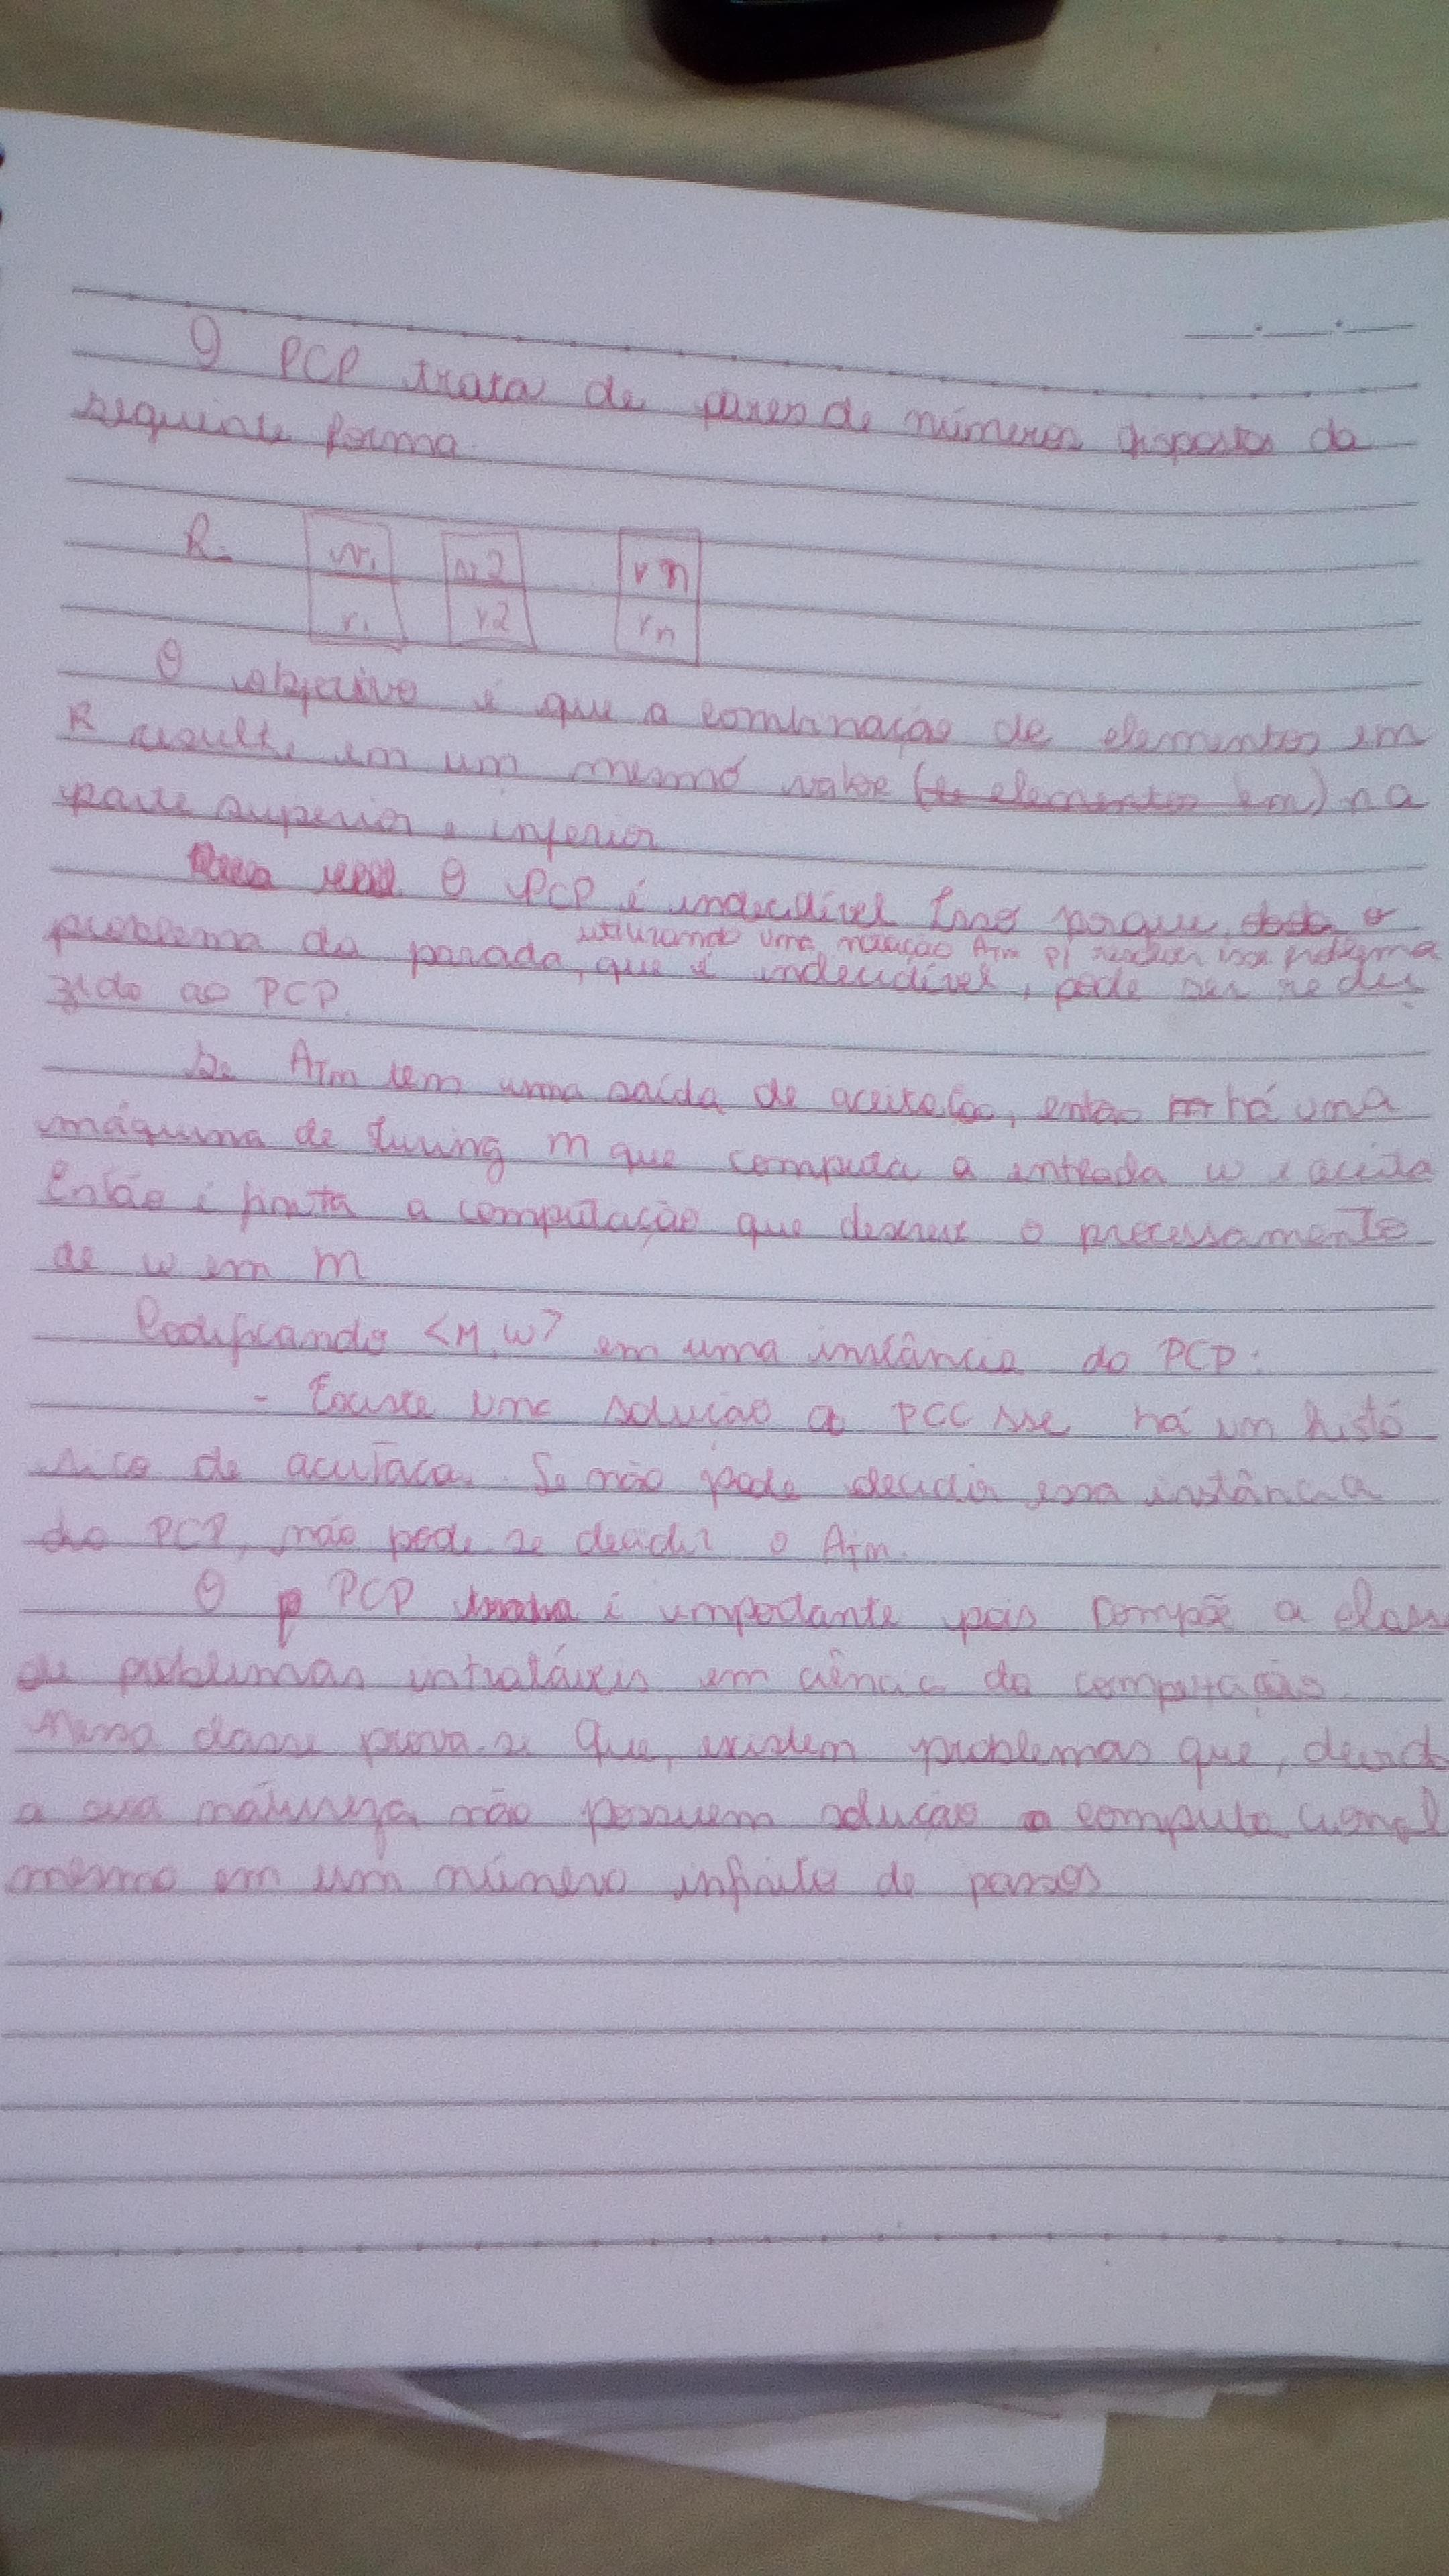 O PCP trata de pares de números dispostos da
seguinte forma
R = w1 w2 vn
v1 v2 vn
O objetivo é que a combinação de elementos em
R resulte em um mesmo valor (elementos em) na
parte superior e inferior
O PCP é indecidível Isso porque, dado o
utilizando uma redução ATM p/ resolver esse problema
problema da parada, que é indecidível, pode ser redu
zido ao PCP.
Se ATM tem uma saída de aceitação, então há uma
máquina de turing M que computa a entrada w e aceita
Então é finita a computação que descreve o processamento
de w em M
Codificando <M, W> em uma instância do PCP:
- Existe uma solução a PCC sse há um histó
rico de aceitação. Se não pode decidir essa instância
do PCP, não pode se decidir o ATM.
O PCP é importante pois compõe a classe
de problemas intratáveis em ciência da computação.
Nessa classe prova-se que, existem problemas que, devido
a sua natureza não possuem solução computacional
mesmo em um número infinito de passos